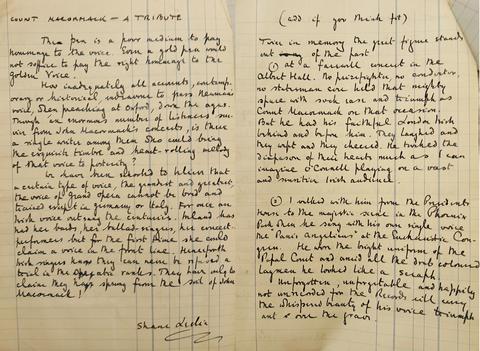 COUNT MACORMACK — A TRIBUTE
The pen is a poor medium to pay
hommage to the voice. Even a gold pen would
not suffice to pay the right hommage to the
Golden Voice.
How inadequately all accounts, contemp-
orary or historical, endeavour to pass
down the ages.
Though an enormous number of listeners sur-
vive from John Macormack's concerts, is there
a single writer among them who could bring
the exquisite timbre and heart-rolling melody
of that voice to posterity?
We have been schooled to believe that
a certain type of voice, the grandest and greatest,
the voice of grand opera cannot be bred and
trained except in Germany or Italy. For once an
Irish voice outsang the centuries. Ireland has
had her bards, her ballad-singers, her concert-
performers but for the first time she could
claim a voice in the front line. Henceforth
Irish singers know they can never be refused a
trial in the Operatic ranks. They have only to
claim they have sprung from the soil of John
Macormack!
Shane Leslie
(add if you think fit)
Twice in memory the great figure stands
out of the past
(1) at a farewell concert in the
Albert Hall. No
no statesman ever held that mighty
space with such ease and triumph as
Count Macormack on that occasion.
But he had his faithful London Irish
behind and before him. They laughed and
they wept and they cheered. He touched the
diapason of their hearts much as I can
imagine O'Connell playing on a vast
and sensitive Irish audience.
(2) I walked with him from the Presidents
House to the majestic scene in the Phoenix
Park when he sang with his own single voice
the "Panis Angelicus" at the Eucharistic Con-
gress. He wore the bright uniform of the
Papal Court and amid all the drab coloured
laymen he looked like a seraph.
Unforgotten, unforgettable and happily
not unrecorded for the Records will carry
the whispered beauty of his voice triumph-
ant over the grave.